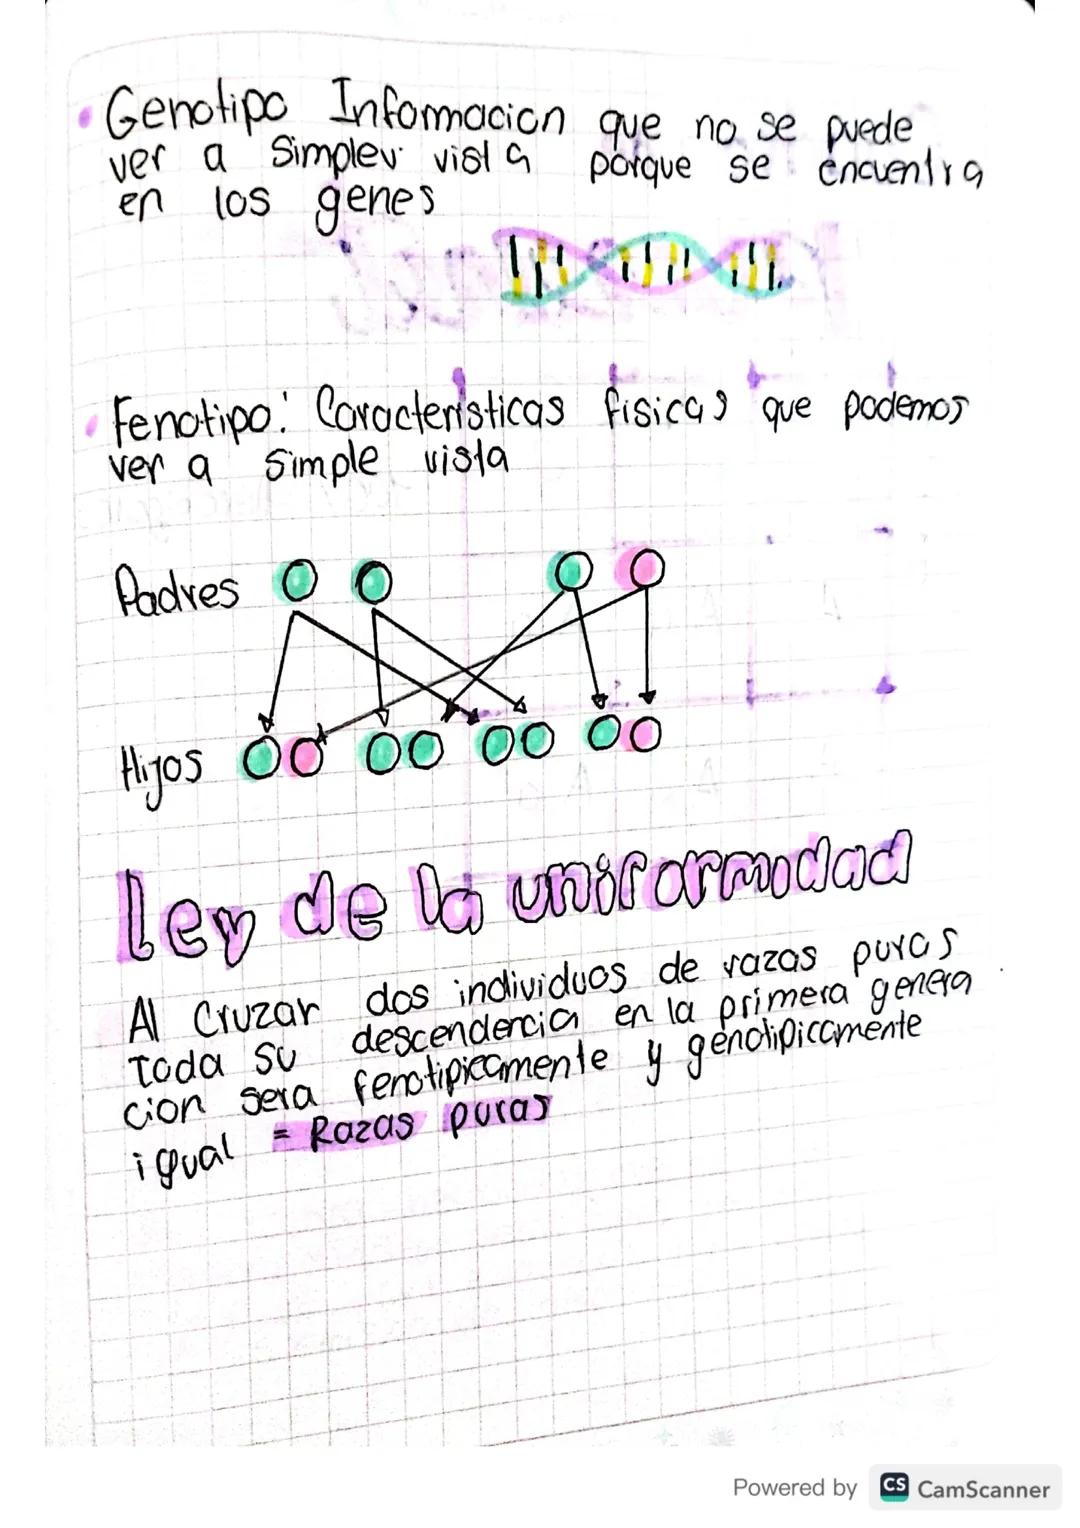 Genotipo Informacion que no se puede
ver a Simplev vista porque se encuentra
en los genes
Fenotipo: Caracteristicas fisicas que podemos
ver a simple vista
Padres
Hijos
Ley de la uniformidad
Al Cruzar dos individuos de razas puras
Toda su descendencia en la primera genera
cion sera fenotipicamente y genotipicamente
igual = Razas puras
Powered by CS CamScanner